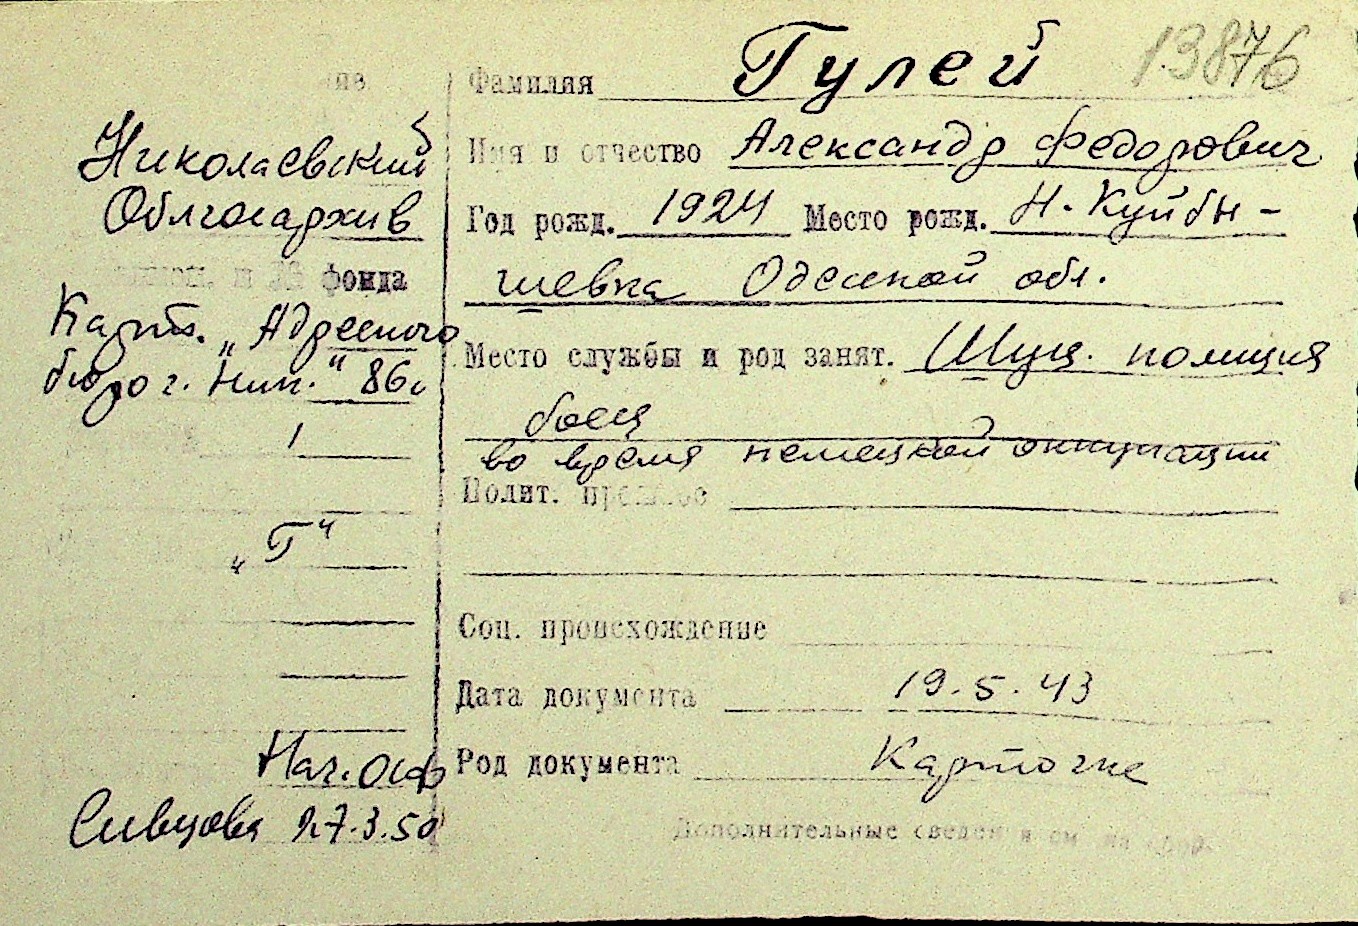 13876
Фамилия Гулей
Имя и отчество Александр Федорович
Год рожд. 1924 Место рожд. Н.-Куйбы-
шевка Одесской обл.
Место службы и род занят. Шуц. полиция
боец
во время немецкой оккупации
Полит. прошлое
Соц. происхождение
Дата документа 19.5.43
Род документа Карточке
Дополнительные сведения см. на
Николаевский
Облгосархив
и № фонда
Карт. „Адресного
бюро г. Ник." 86
1
„Г"
Нач.
Сивцова 27.3.50